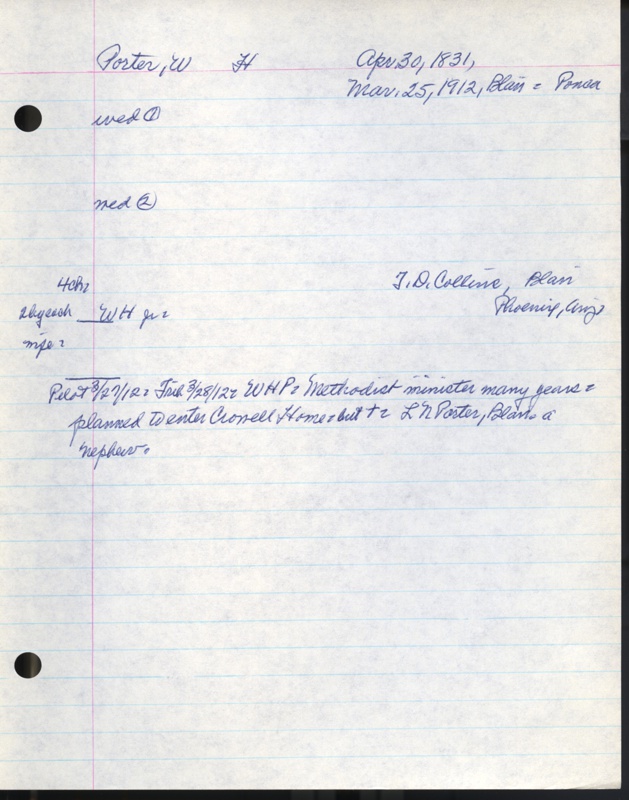 Porter, W H Apr 30, 1831,
Mar. 25, 1912, Blair = Ponca
wed ①
wed ②
4ch=
T. D. Collins, Blair
2byeach W H jr=
Phoenix, Ariz
mfo=
Pilot 3/27/12= Trib 3/28/12= W H P= Methodist minister many years=
planned to enter Crowell Home= but += L N Porter, Blair= a
nephew=